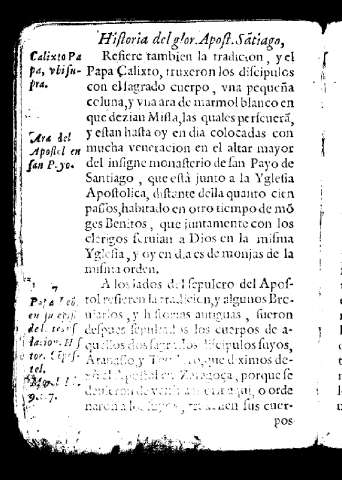 Historia del glor. Apost. Sãtiago,
Calixto Pa
pa, vbi su-
pra.
Refiere tambien la tradicion, y el
Papa Calixto, truxeron los discipulos
con el sagrado cuerpo, vna pequeña
coluna, y vna ara de marmol blanco en
que dezian Missa, las quales perseuerã,
y estan hasta oy en dia colocadas con
Ara del
Apostol en
san Payo.
mucha veneracion en el altar mayor
del insigne monasterio de san Payo de
Santiago, que està junto a la Yglesia
Apostolica, distante della quanto cien
passos, habitado en otro tiempo de mõ
ges Benitos, que juntamente con los
clerigos seruian a Dios en la misma
Yglesia, y oy en dia es de monjas de la
misma orden.
A los lados del sepulcro del Apos-
tol refieren la tradicion, y algunos Bre-
uiarios, y historias antiguas, fueron
despues sepultados los cuerpos de a-
quellos dos sagrados discipulos suyos,
Atanasio, y Teodoro, que diximos de-
xò el Apostol en Zaragoça, porque se
Papa
en su epist.
del
tor.
tel.
naron a los suyos, sus cuer-
pos